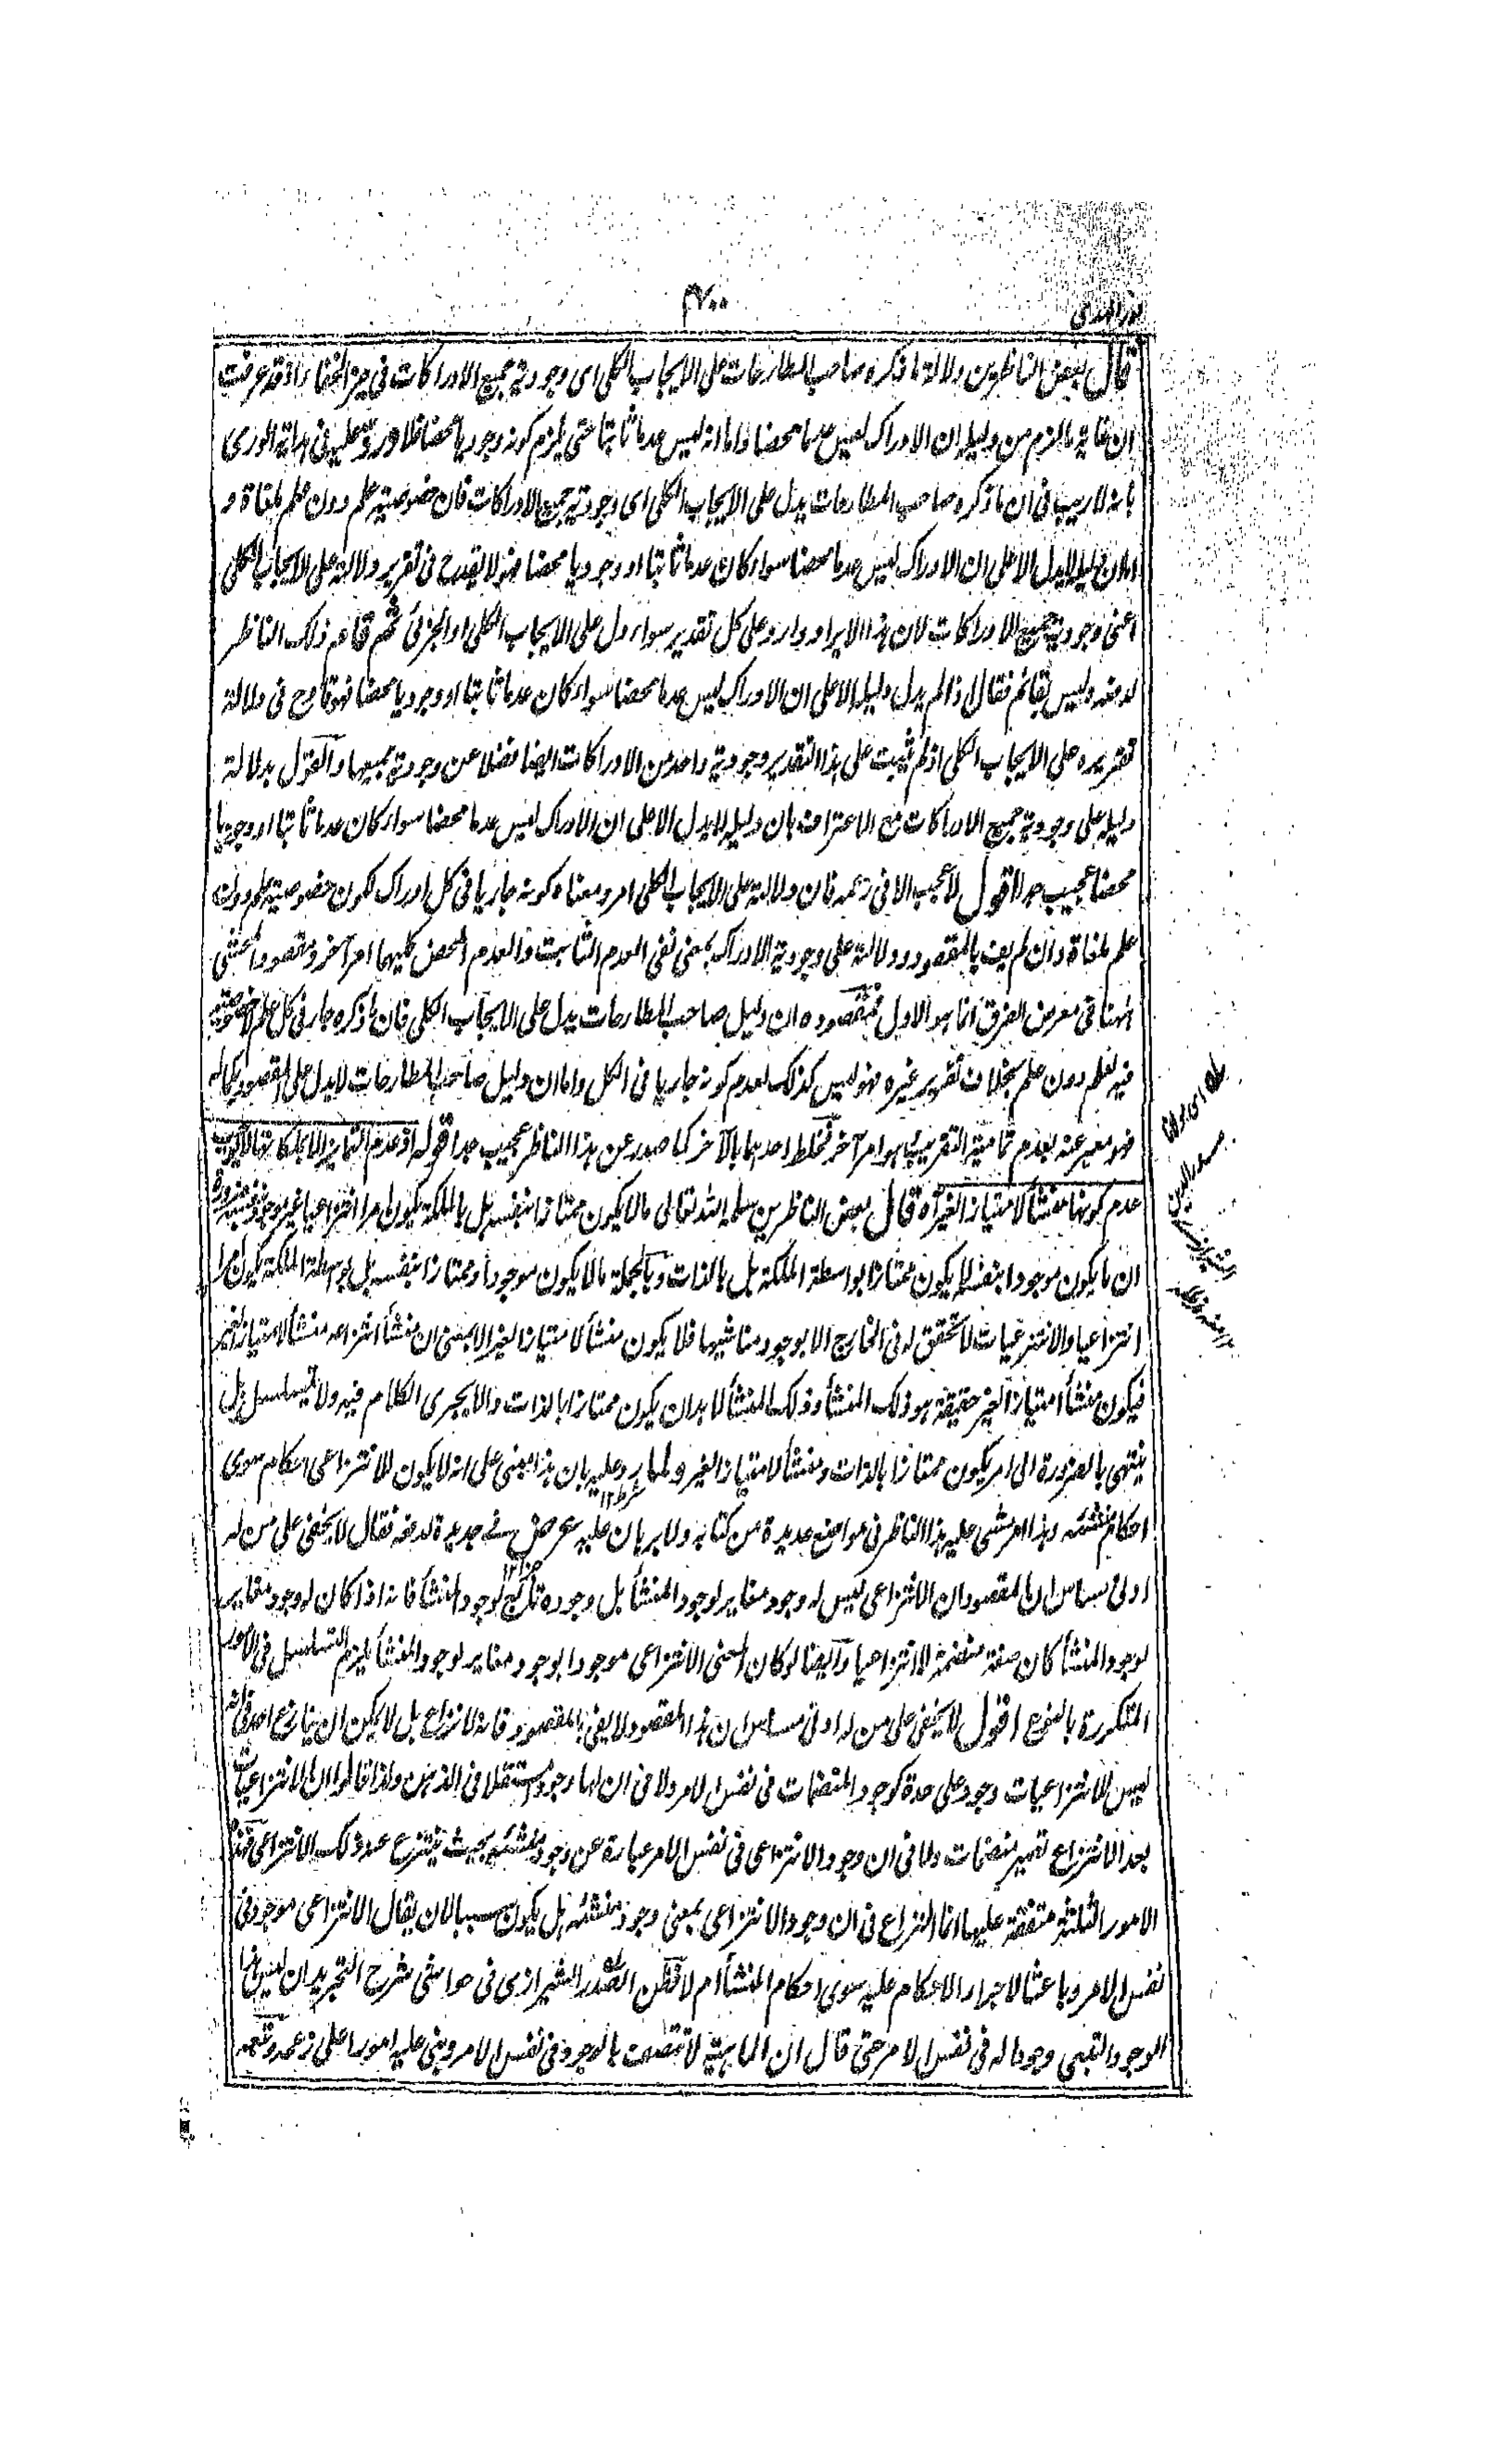 نور الهدى
قال بعض الناظرين دلالة ما ذكره صاحب المطارحات على الايجاب الكلى اى وجودية جميع الادراكات فى حيز الخفاء اذ قد عرفت
ان غاية ما لزم من دليله ان الادراك ليس عدما محضا واما انه ليس عدما ثابتا حتى يلزم كونه وجوديا محضا فلا ورد عليه فى هداية الورى
بانه لا ريب فى ان ما ذكره صاحب المطارحات يدل على الايجاب الكلى اى وجودية جميع الادراكات فان خصوصية علم دون علم ملغاة و
اما ان دليله لا يدل الا على ان الادراك ليس عدما محضا سواء كان عدما ثابتا او وجوديا محضا فهو لا يقدح فى تقرير دلالته على الايجاب الكلى
اعنى وجودية جميع الادراكات لان هذا الايراد وارد على كل تقدير سواء دل على الايجاب الكلى او الجزئى ثم قام ذلك الناظر
لدفعه وليس بقائم فقال اذا لم يدل دليله الا على ان الادراك ليس عدما محضا سواء كان عدما ثابتا او وجوديا محضا فهو قادح فى دلالة
تقريره على الايجاب الكلى اذ لم يثبت على هذا التقدير وجودية واحد من الادراكات ايضا فضلا عن وجودية جميعها والقول بدلالة
دليله على وجودية جميع الادراكات مع الاعتراف بان دليله لا يدل الا على ان الادراك ليس عدما محضا سواء كان عدما ثابتا او وجوديا
محضا عجيب جدا اقول لا عجب الا فى زعمه فان دلالته على الايجاب الكلى امر ومعناه كونه جاريا فى كل ادراك لكون خصوصية علم دون
علم ملغاة وان لم يف بالمقصود ودلالته على وجودية الادراك بمعنى نفى العدم الثابت والعدم المحض كليهما امر آخر ومقصود المحشى
ههنا فى معرض الفرق انما هو الاول فمقصوده ان دليل صاحب المطارحات يدل على الايجاب الكلى فان ما ذكره جار فى كل علم لا خصوصية
فيه لعلم دون علم بخلاف تقرير غيره فهو ليس كذلك لعدم كونه جاريا فى الكل واما ان دليل صاحب المطارحات لا يدل على المقصود بكماله
فهو معبر عنه بعدم تمامية التقريب فهو امر آخر فخلط احدهما بالآخر كما صدر عن هذا الناظر عجيب جدا قوله اذ عدم التمايز الا بملكاتها لا يوجب
عدم كونها منشأ لامتياز الغير آه قال بعض الناظرين سلمه الله تعالى ما لا يكون ممتازا بنفسه بل بالملكة يكون امرا انتزاعيا غير موجود بنفسه ضرورة
ان ما يكون موجودا بنفسه لا يكون ممتازا بواسطة الملكة بل بالذات وبالجملة ما لا يكون موجودا وممتازا بنفسه بل بواسطة الملكة يكون امرا
انتزاعيا والانتزاعيات لا تحقق له فى الخارج الا بوجود مناشيها فلا يكون منشأ لامتياز الغير الا بمعنى ان منشأ انتزاعه منشأ لامتياز الغير
فيكون منشأ امتياز الغير حقيقة هو ذلك المنشأ وذلك المنشأ لا بد ان يكون ممتازا بالذات والا يجرى الكلام فيه ولا يتسلسل بل
ينتهى بالضرورة الى امر يكون ممتازا بالذات ومنشأ لامتياز الغير ولما يرد عليه بان هذا مبنى على انه لا يكون للانتزاعى احكام سوى
احكام منشئه وهذا امر مشى عليه هذا الناظر فى مواضع عديدة من كتابه ولا برهان عليه عرض فى جديدة لدفعه فقال لا يخفى على من له
ادنى مساس ان المقصود ان الانتزاعى ليس له وجود مغاير لوجود المنشأ بل وجوده تابع لوجود المنشأ فانه اذا كان له وجود مغاير
لوجود المنشأ كان صفة منضمة لا انتزاعيا وايضا لو كان المعنى الانتزاعى موجودا بوجود مغاير لوجود المنشأ يلزم التسلسل فى الامور
المتكررة بالنوع اقول لا يخفى على من له ادنى مساس ان هذا المقصود لا يفى بالمقصود فانه لا نزاع بل لا يمكن ان ينازع احد فى انه
ليس للانتزاعيات وجود على حدة كوجود المنضمات فى نفس الامر ولا فى ان لها وجودا مستقلا فى الذهن ولذا قالوا ان الانتزاعيات
بعد الانتزاع تصير منضمات ولا فى ان وجود الانتزاعى فى نفس الامر عبارة عن وجود منشئه بحيث ينتزع عنه ذلك الانتزاعى فهذه
الامور الثلثة متفقة عليها انما النزاع فى ان وجود الانتزاعى بمعنى وجود منشئه هل يكون سببا لان يقال الانتزاعى موجود فى
نفس الامر وباعثا لاجراء الاحكام عليه سوى احكام المنشأ ام لا فظن الصدر الشيرازى فى حواشى شرح التجريد ان ليس هذا
الوجود التبعى وجودا له فى نفس الامر حتى قال ان الماهية لا تتصف بالوجود فى نفس الامر وبنى عليه امورا على زعمه وتبعه
اى مولانا
صدر الدين
الشيرازى